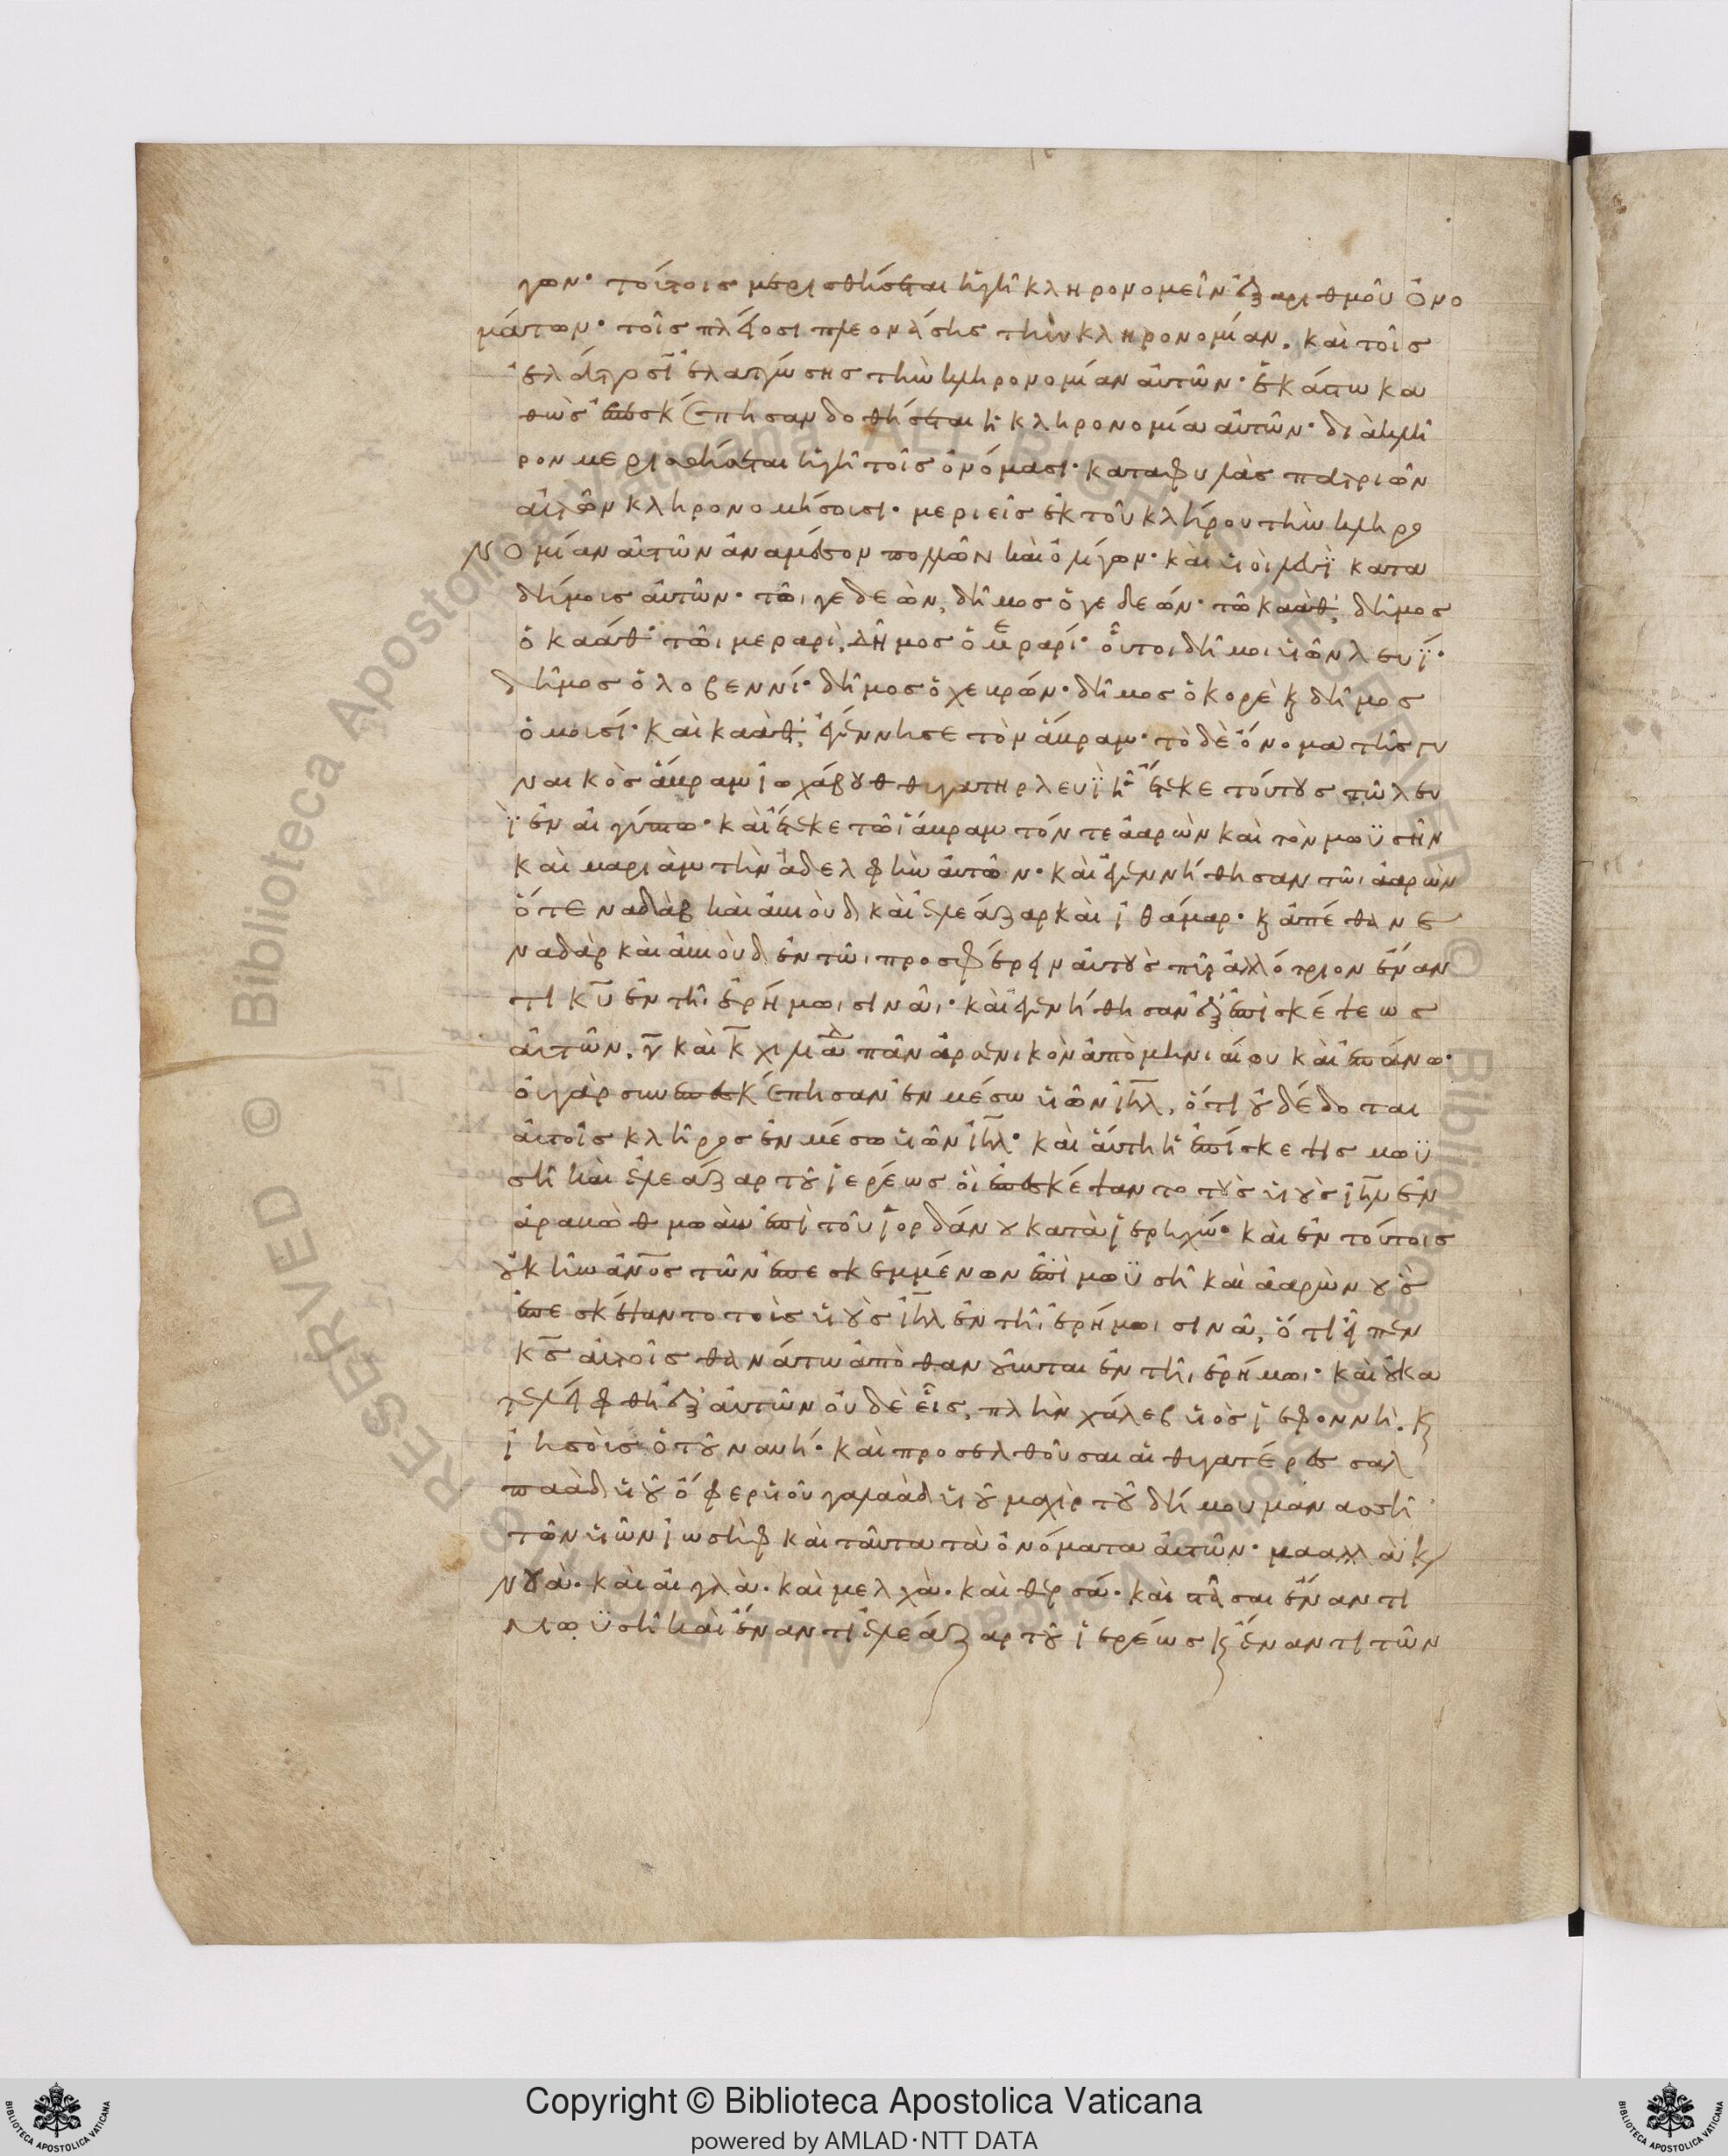 γων· τούτοις μερισθήσεται ἡ γῆ κληρονομεῖν ἐξ ἀριθμοῦ ὀνο
μάτων· τοῖς πλείοσι πλεονάσῃς τὴν κληρονομίαν. καὶ τοῖς
ἐλάττοσι ἐλαττώσῃς τὴν κληρονομίαν αὐτῶν· ἑκάστω κα
θὼς ἐπεσκέπησαν δοθήσεται ἡ κληρονομία αὐτῶν· διὰ κλή
ρον μερισθήσεται ἡ γῆ τοῖς ὀνόμασι· κατα φυλὰς πατριῶν
αὐτῶν κληρονομήσουσι· μεριεῖς ἐκ τοῦ κλήρου τὴν κληρο
νομίαν αὐτῶν ἀναμέσον πολλῶν καὶ ὀλίγων· καὶ υἱοὶ λευῒ κατα
δήμους αὐτῶν· τῶι γεδεὼν, δῆμος ὁ γεδεών· τῶ καὰθ, δῆμος
ὁ καάθ· τῶι μεραρὶ, δῆμος ὁ μεραρί· οὗτοι δῆμοι υἱῶν λευΐ·
δῆμος ὁ λοβεννί· δῆμος ὁ χεβρών· δῆμος ὁ κορὲ κ δῆμος
ὁ μουσί· καὶ καὰθ, ἐγέννησε τὸν ἄμραμ· τὸ δὲ ὄνομα τῆς γυ
ναικὸς ἄμραμ ἰωχάβεδ θυγατηρ λευῒ ἣ ἔτεκε τούτους τῶ λευ
ῒ ἐν αἰγύπτω· καὶ ἔτεκε τῶι ἄμραμ τόν τε ἀαρὼν καὶ τὸν μωϋσῆν
καὶ μαριὰμ τὴν ἀδελφὴν αὐτῶν· καὶ ἐγεννήθησαν τῶι ἀαρὼν
ὅ τε ναδὰβ καὶ ἀβιοὺδ καὶ ἐλεάζαρ καὶ ἰθάμαρ· κ ἀπέθανε
ναδὰβ καὶ ἀβιοὺδ ἐν τῶι προσφέρειν αὐτοὺς πῦρ ἀλλότριον ἔναν
τι κυ ἐν τῆι ἐρήμωι σινᾶι· καὶ ἐγενήθησαν ἐξ ἐπισκέψεως
αὐτῶν. γ καὶ κ χιλιὰδ πᾶν ἀρσενικὸν ἀπὸ μηνιαίου καὶ ἐπάνω·
οὐ γὰρ συνεπεσκέπησαν ἐν μέσω υἱῶν ιηλ, ὅτι οὐ δέδοται
αὐτοῖς κλῆρος ἐν μέσω υἱῶν ιηλ· καὶ αὕτη ἡ ἐπίσκεψις μωϋ
σῆ καὶ ἐλεάζαρ τοῦ ἱερέως οἳ ἐπεσκέψαντο τοὺς υἱοὺς ιηλ ἐν
ἀραμὼθ μωὰβ ἐπὶ τοῦ ἰορδάνου κατὰ ἱεριχώ· καὶ ἐν τούτοις
οὐκ ἦν ἄνος τῶν ἐπεσκεμμένων ἐπὶ μωϋσῆ καὶ ἀαρὼν οὓς
ἐπεσκέψαντο τοὺς υἱοὺς ιηλ ἐν τῆι ἐρήμωι σινᾶ, ὅτι εἶπεν
κς αὐτοῖς θανάτω ἀποθανοῦνται ἐν τῆι ἐρήμωι· καὶ οὐ κα
τελείφθη ἐξ αὐτῶν οὐδὲ εἷς, πλὴν χάλεβ υἱὸς ἰεφοννὴ. κ
ἰησοὺς ὁ τοῦ ναυή· καὶ προσελθοῦσαι αἱ θυγατέρες σαλ
παὰδ υἱοῦ ὄφερ υἱοῦ γαλαὰδ υἱοῦ μαχὶρ τοῦ δήμου μανασσῆ
τῶν υἱῶν ἰωσὴφ καὶ ταῦτα τὰ ὀνόματα αὐτῶν· μααλλὰ κ
νουὰ· καὶ αἰγλὰ· καὶ μελχὰ· καὶ θερσά· καὶ στᾶσαι ἔναντι
μωϋσῆ καὶ ἔναντι ἐλεάζαρ τοῦ ἱερέως κ ἔναντι τῶν
Copyright © Biblioteca Apostolica Vaticana
powered by AMLAD·NTT DATA